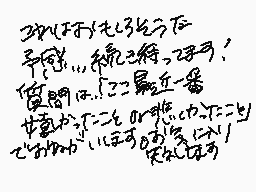 これはおもしろそうだ
予感…続きを待ってます!
質問は…「ここ最近一番
嬉しかったこと or 悲しかったこと」
でおねがいします。お気に入り
失礼します